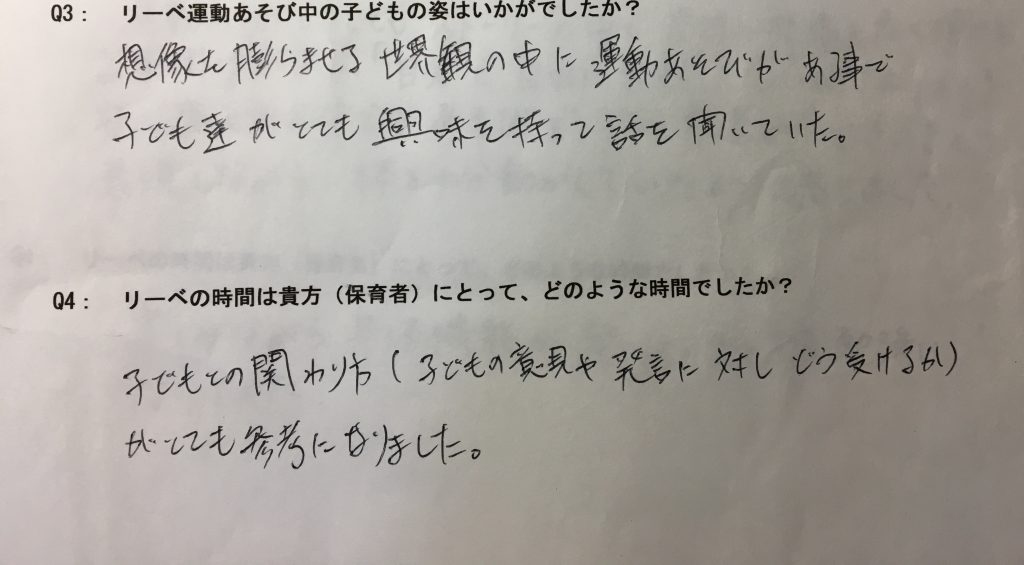 Q3： リーベ運動あそび中の子どもの姿はいかがでしたか？
想像を膨らませる世界観の中に運動あそびがある事で
子ども達がとても興味を持って話を聞いていた。
Q4： リーベの時間は貴方（保育者）にとって、どのような時間でしたか？
子どもとの関わり方（子どもの意見や発言に対しどう受けるか）
がとても参考になりました。